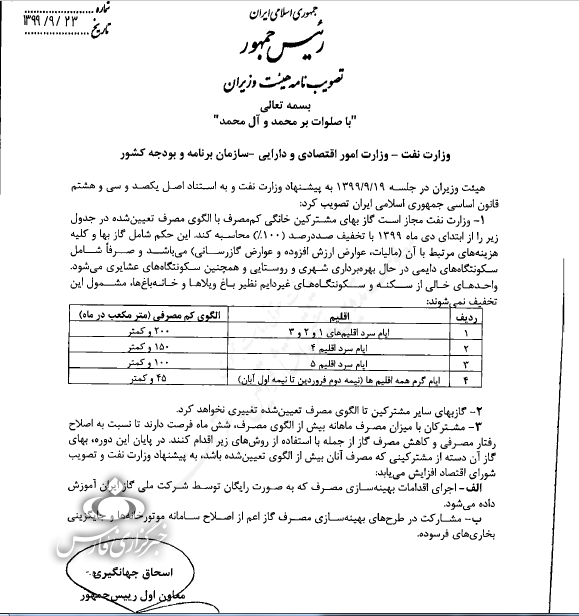 جمهوری اسلامی ایران
رئیس جمهور
تصویب نامه هیئت وزیران
شماره
۱۳۹۹/۹/۲۳
تاریخ
بسمه تعالی
"با صلوات بر محمد و آل محمد"
وزارت نفت – وزارت امور اقتصادی و دارایی –سازمان برنامه و بودجه کشور
هیئت وزیران در جلسه ۱۳۹۹/۹/۱۹ به پیشنهاد وزارت نفت و به استناد اصل یکصد و سی و هشتم
قانون اساسی جمهوری اسلامی ایران تصویب کرد:
۱– وزارت نفت مجاز است گاز بهای مشترکین خانگی کم‌مصرف با الگوی مصرف تعیین‌شده در جدول
زیر را از ابتدای دی ماه ۱۳۹۹ با تخفیف صددرصد (۱۰۰٪) محاسبه کند. این حکم شامل گاز بها و کلیه
هزینه‌های مرتبط با آن (مالیات، عوارض ارزش افزوده و عوارض گازرسانی) می‌باشد و صرفاً شامل
سکونتگاه‌های دایمی در حال بهره‌برداری شهری و روستایی و همچنین سکونتگاه‌های عشایری می‌شود.
واحدهای خالی از سکنه و سکونتگاه‌های غیردایم نظیر باغ ویلاها و خانه‌باغ‌ها، مشمول این
تخفیف نمی‌شوند:
ردیف اقلیم الگوی کم مصرفی (متر مکعب در ماه)
۱ ایام سرد اقلیم‌های ۱ و ۲ و ۳ ۲۰۰ و کمتر
۲ ایام سرد اقلیم ۴ ۱۵۰ و کمتر
۳ ایام سرد اقلیم ۵ ۱۰۰ و کمتر
۴ ایام گرم همه اقلیم ها (نیمه دوم فروردین تا نیمه اول آبان) ۴۵ و کمتر
۲– گازبهای سایر مشترکین تا الگوی مصرف تعیین‌شده تغییری نخواهد کرد.
۳– مشترکان با میزان مصرف ماهانه بیش از الگوی مصرف، شش ماه فرصت دارند تا نسبت به اصلاح
رفتار مصرفی و کاهش مصرف گاز از جمله با استفاده از روش‌های زیر اقدام کنند. در پایان این دوره، بهای
گاز آن دسته از مشترکینی که مصرف آنان بیش از الگوی تعیین‌شده باشد، به پیشنهاد وزارت نفت و تصویب
شورای اقتصاد افزایش می‌یابد:
الف– اجرای اقدامات بهینه‌سازی مصرف که به صورت رایگان توسط شرکت ملی گاز ایران آموزش
داده می‌شود.
ب– مشارکت در طرح‌های بهینه‌سازی مصرف گاز اعم از اصلاح سامانه موتورخانه‌ها و جایگزینی
بخاری‌های فرسوده.
اسحاق جهانگیری
معاون اول رییس‌جمهور
خبرگزاری فارس